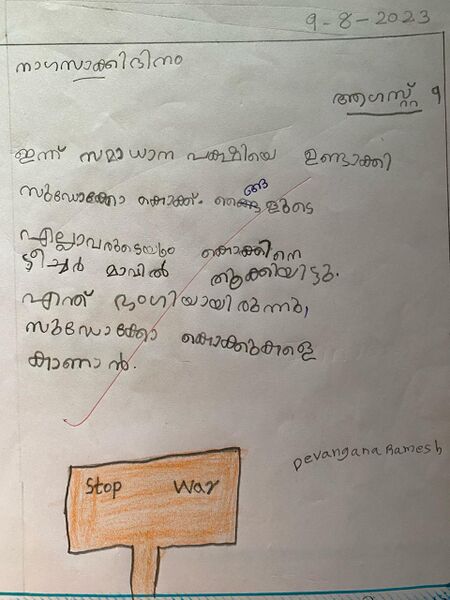 9-8-2023
നാഗസാക്കിദിനം
ആഗസ്റ്റ് 9
ഇന്ന് സമാധാന പക്ഷിയെ ഉണ്ടാക്കി
സുഡോക്കോ കൊക്ക്. ങ്ങളുടെ
എല്ലാവരുടെയും കൊക്കിനെ
ടീച്ചർ മാവിൽ തൂക്കിയിട്ടു.
എന്ത് ഭംഗിയായിരുന്നു,
സുഡോക്കോ കൊക്കുകളെ
കാണാൻ.
Devangana Ramesh
Stop War